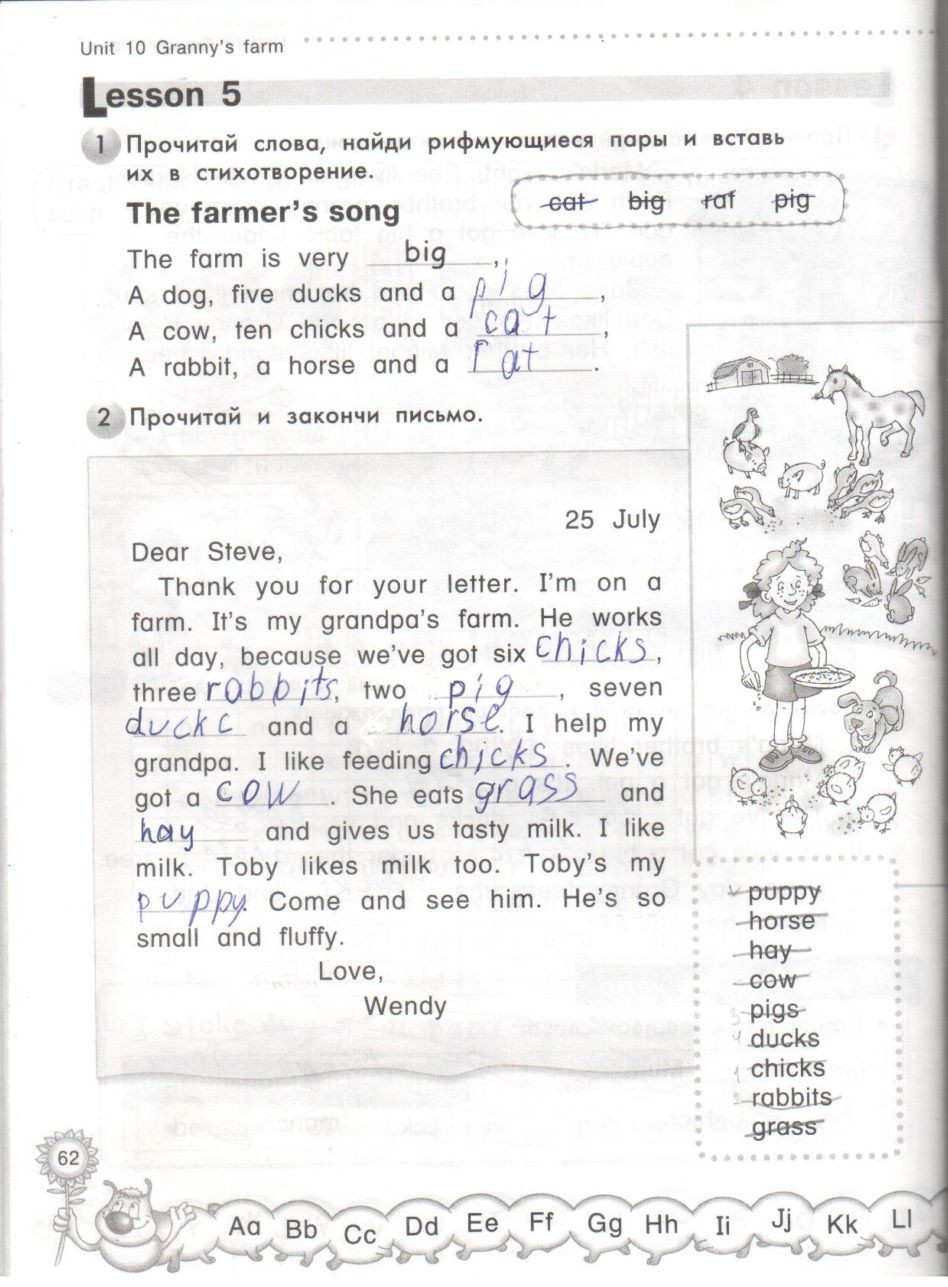 Unit 10 Granny's farm
Lesson 5
1 Прочитай слова, найди рифмующиеся пары и вставь
их в стихотворение.
cat big rat pig
The farmer's song
The farm is very big,
A dog, five ducks and a pig,
A cow, ten chicks and a cat,
A rabbit, a horse and a rat.
2 Прочитай и закончи письмо.
25 July
Dear Steve,
Thank you for your letter. I'm on a
farm. It's my grandpa's farm. He works
all day, because we've got six chicks,
three rabbits, two pig, seven
duckc and a horse. I help my
grandpa. I like feeding chicks. We've
got a cow. She eats grass and
hay and gives us tasty milk. I like
milk. Toby likes milk too. Toby's my
puppy. Come and see him. He's so
small and fluffy.
Love,
Wendy
puppy
horse
hay
cow
3 pigs
4 ducks
1 chicks
2 rabbits
grass
62
Aa Bb Cc Dd Ee Ff Gg Hh Ii Jj Kk Ll